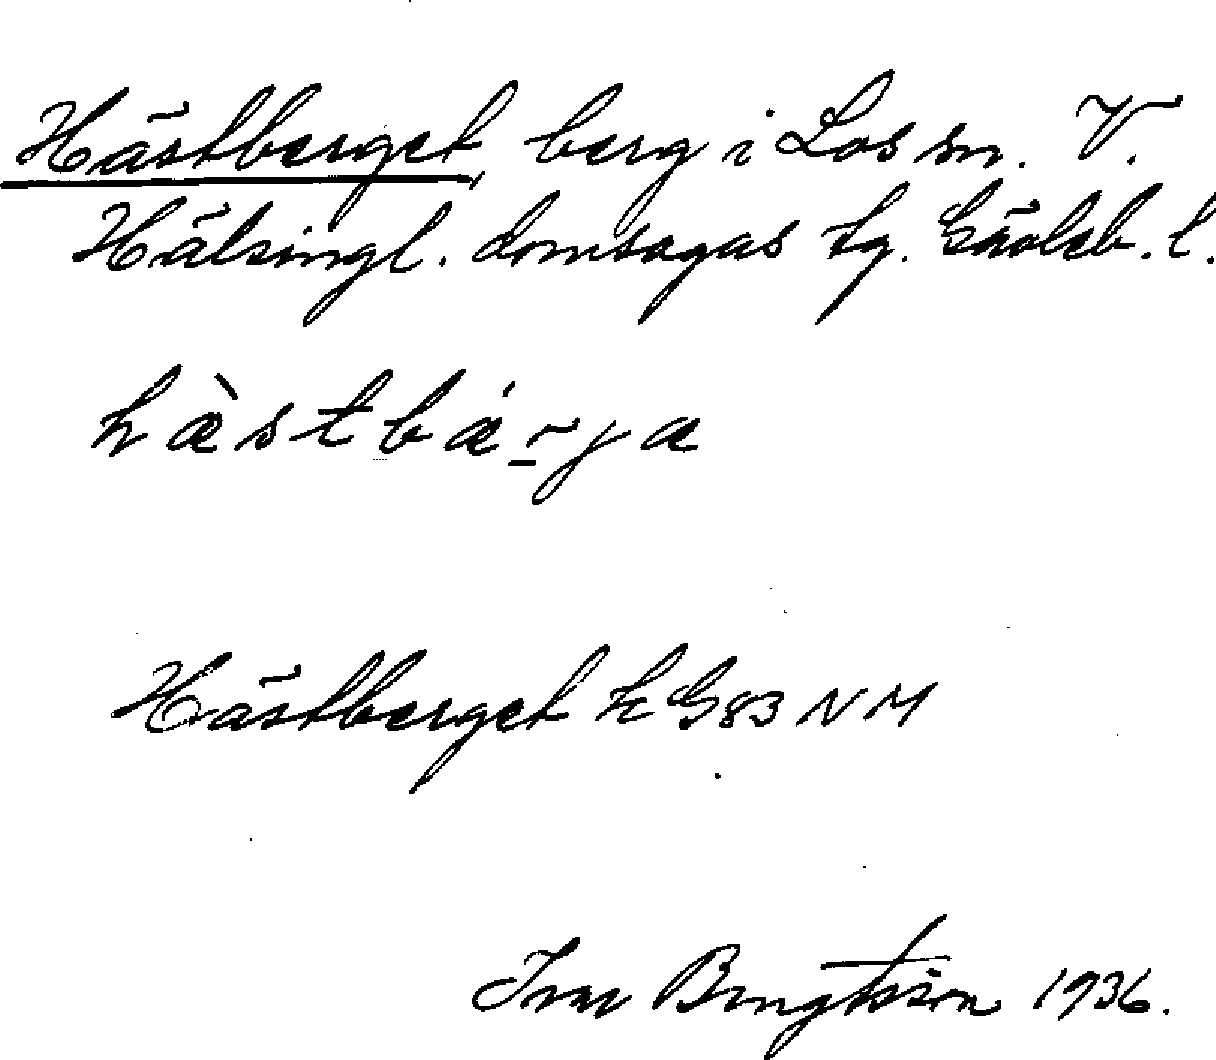 Hästberget, berg i Los sn. V.
Hälsingl. domsagas tg. Gävleb. l.
hæ̀stbǽr̠ja
Hästberget k G83 NM
Ivar Bengtsson 1936.